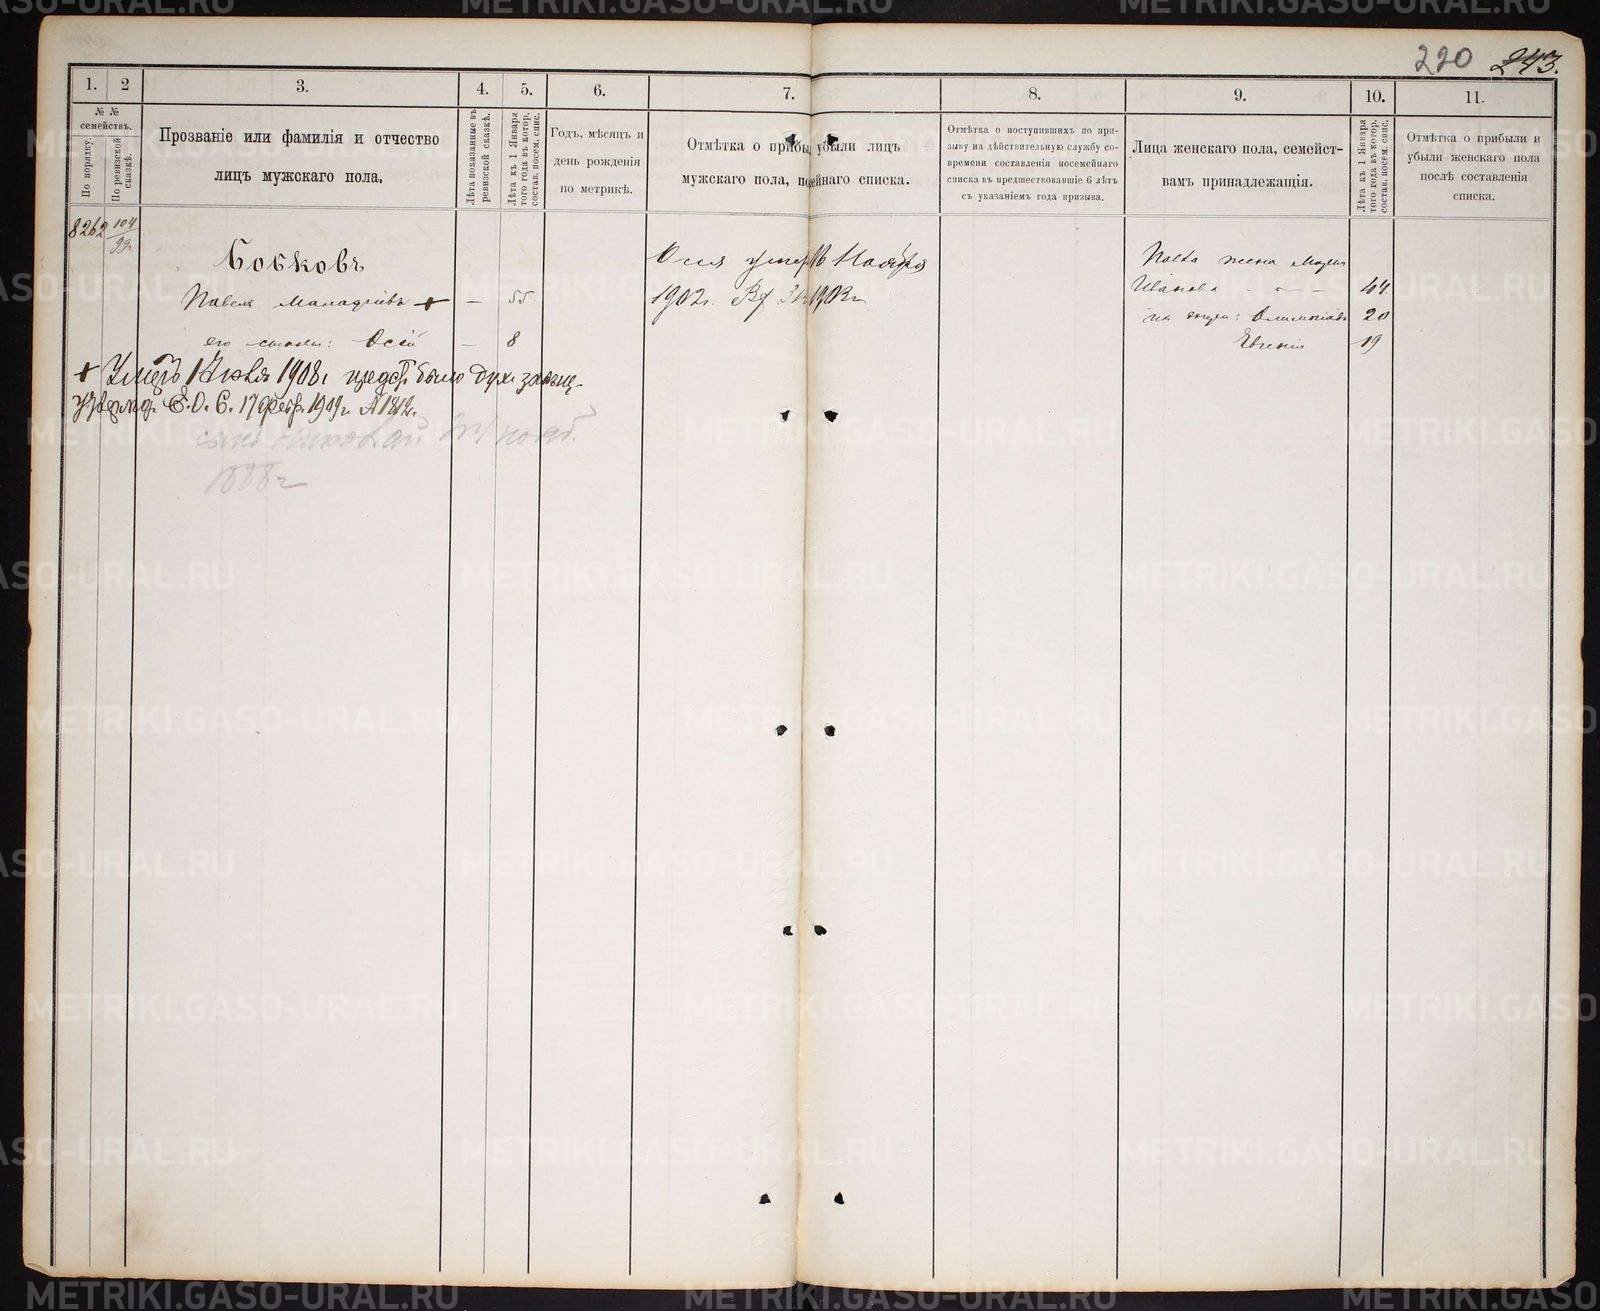 220 243.
1. 2 3. 4. 5. 6. 7. 8. 9. 10. 11.
№ №
семействъ.
По порядку.
По ревизской
сказкѣ.
Прозваніе или фамилія и отчество
лицъ мужскаго пола.
Лѣта показанные въ
ревизской сказкѣ.
Лѣта къ 1 Января
того года въ котор.
состав. посем. спис.
Годъ, мѣсяцъ и
день рожденія
по метрикѣ.
Отмѣтка о прибы убыли лицъ
мужскаго пола, по ейнаго списка.
Отмѣтка о поступившихъ по при-
зыву на дѣйствительную службу со-
времени составленія посемейнаго
списка въ предшествовавшіе 6 лѣтъ
съ указаніемъ года призыва.
Лица женскаго пола, семейст-
вамъ принадлежащія.
Лѣта къ 1 Января
того года въ котор.
состав. посем. спис.
Отмѣтка о прибыли и
убыли женскаго пола
послѣ составленія
списка.
8262 104
99
Бобковъ
Павелъ + — 55
его сыновья: Осій — 8
+ Умеръ 1908г.
С. О. С. 17 Февр. 1909г. №1812.
сынъ Николай нояб.
1888г
Осія умеръ 16 Ноября
1902г. 1903г.
Павла жена Марія
Иванова — — — 44
их дочери: Олимпіада 20
Евгенія 19
METRIKI.GASO-URAL.RU